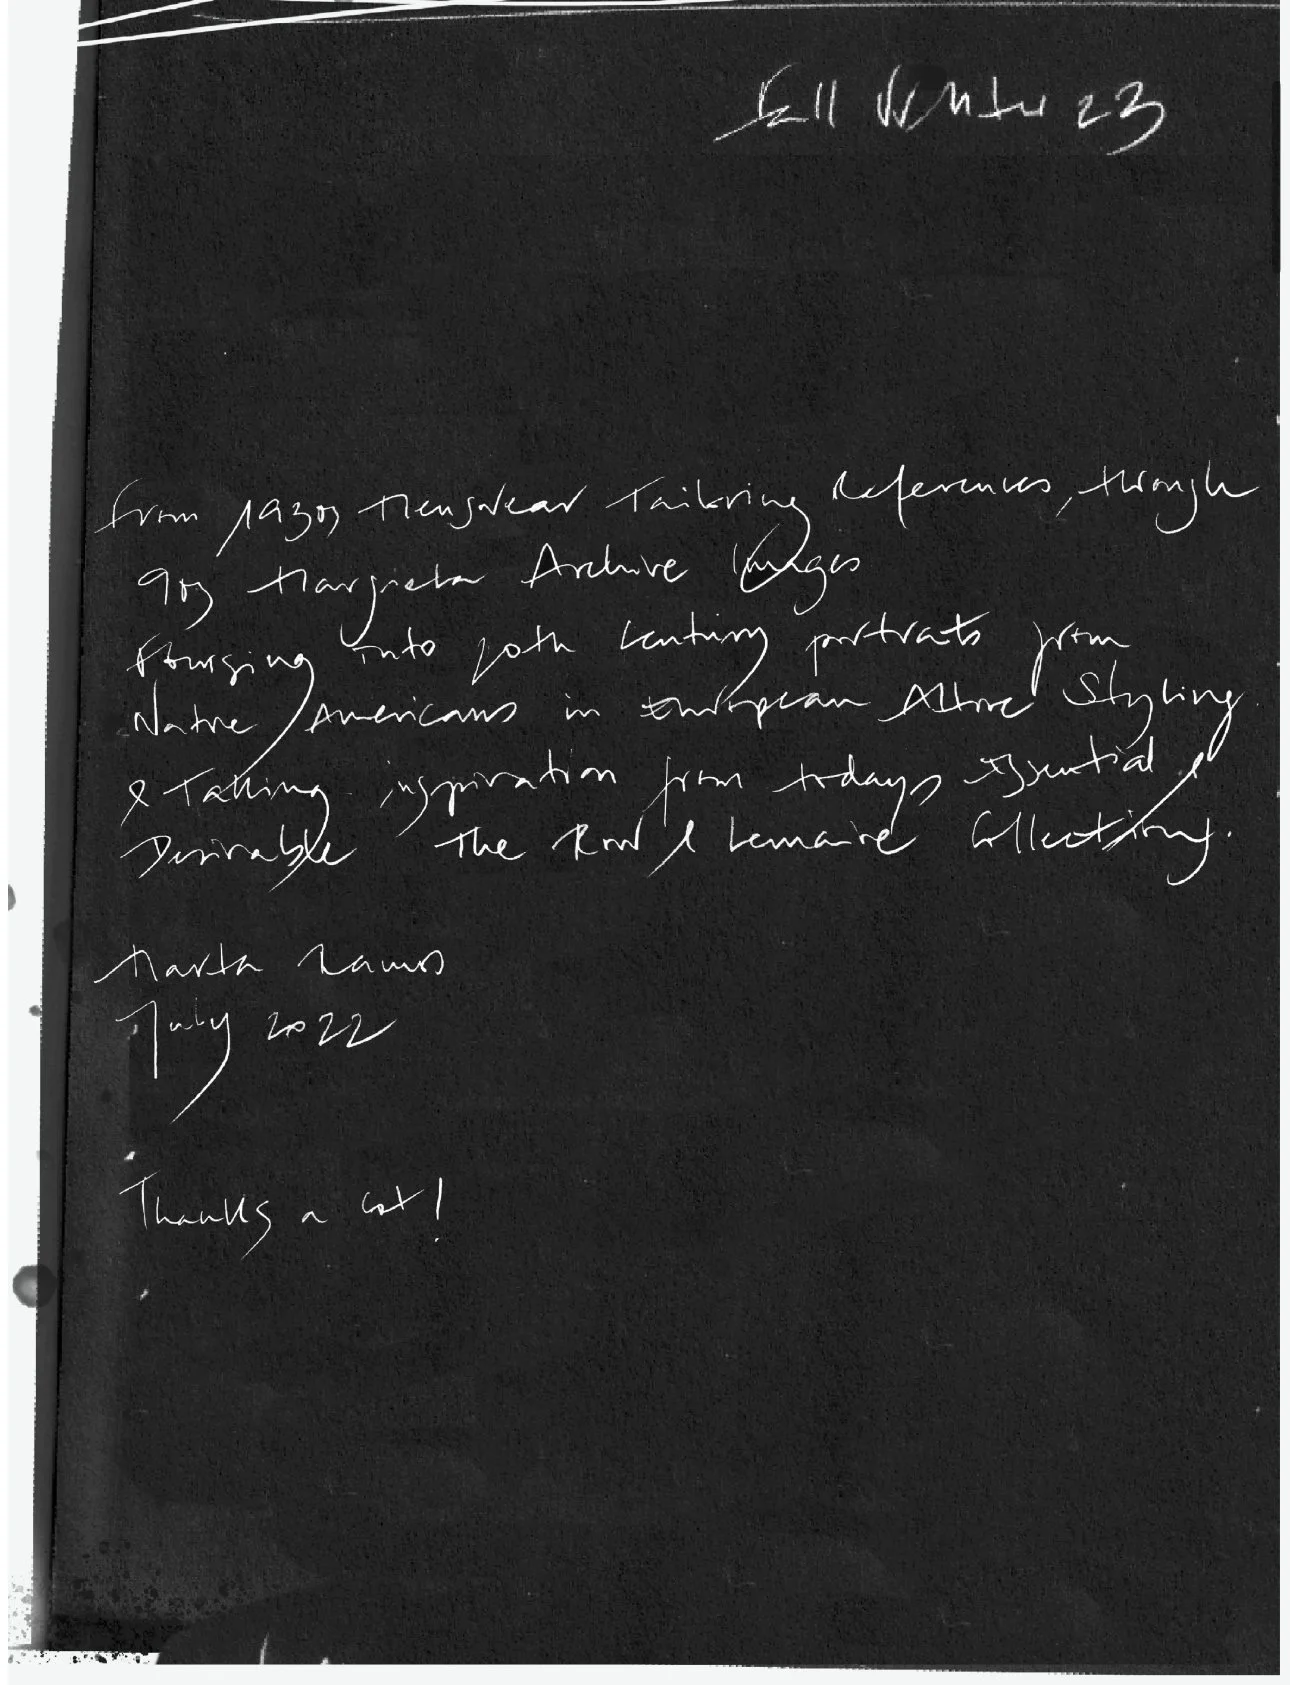 Fall Winter 23
From 1930s Menswear Tailoring References, through
90s Margiela Archive Images
into 20th Century portraits from
Native Americans in European Attire Styling
& Taking inspiration from todays Essential &
Desirable The Row & Lemaire Collections.
Marta Ramos
July 2022
Thanks a lot!